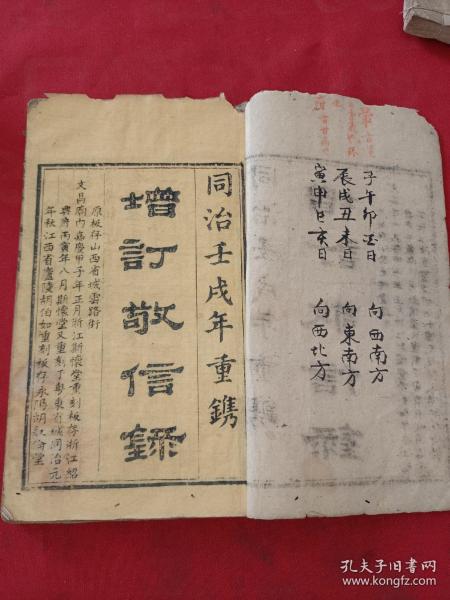 子午卯酉日 向西南方
辰戌丑未日 向東南方
寅申巳亥日 向西北方
同治壬戌年重鐫
增訂敬信錄
原板存山西省城雲路街
文昌廟內嘉慶甲子年正月浙江斯懷堂重刻板存浙江紹
興府丙寅年八月斯懷堂又重刻于粵東省城同治元
年秋江西省廬陵胡伯如重刻板存永陽胡
孔夫子旧书网
www.kongfz.com